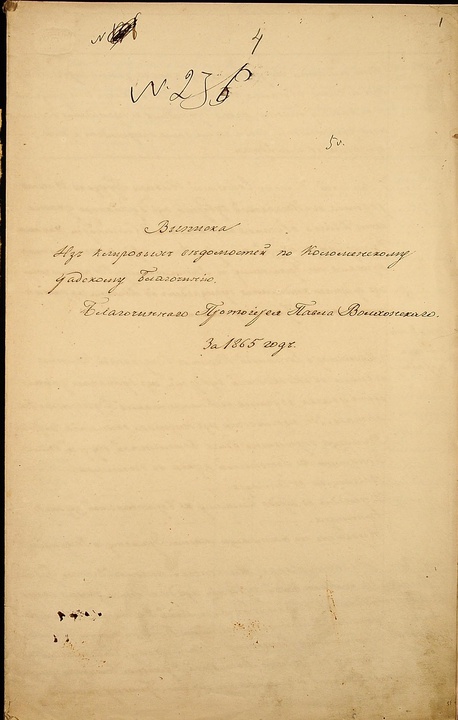 1
№
4
№ 236
50.
Выписка
Изъ клировыхъ вѣдомостей по Коломенскому
градскому Благочинію.
Благочиннаго Протоіерея Павла Волхонскаго.
За 1865 годъ.